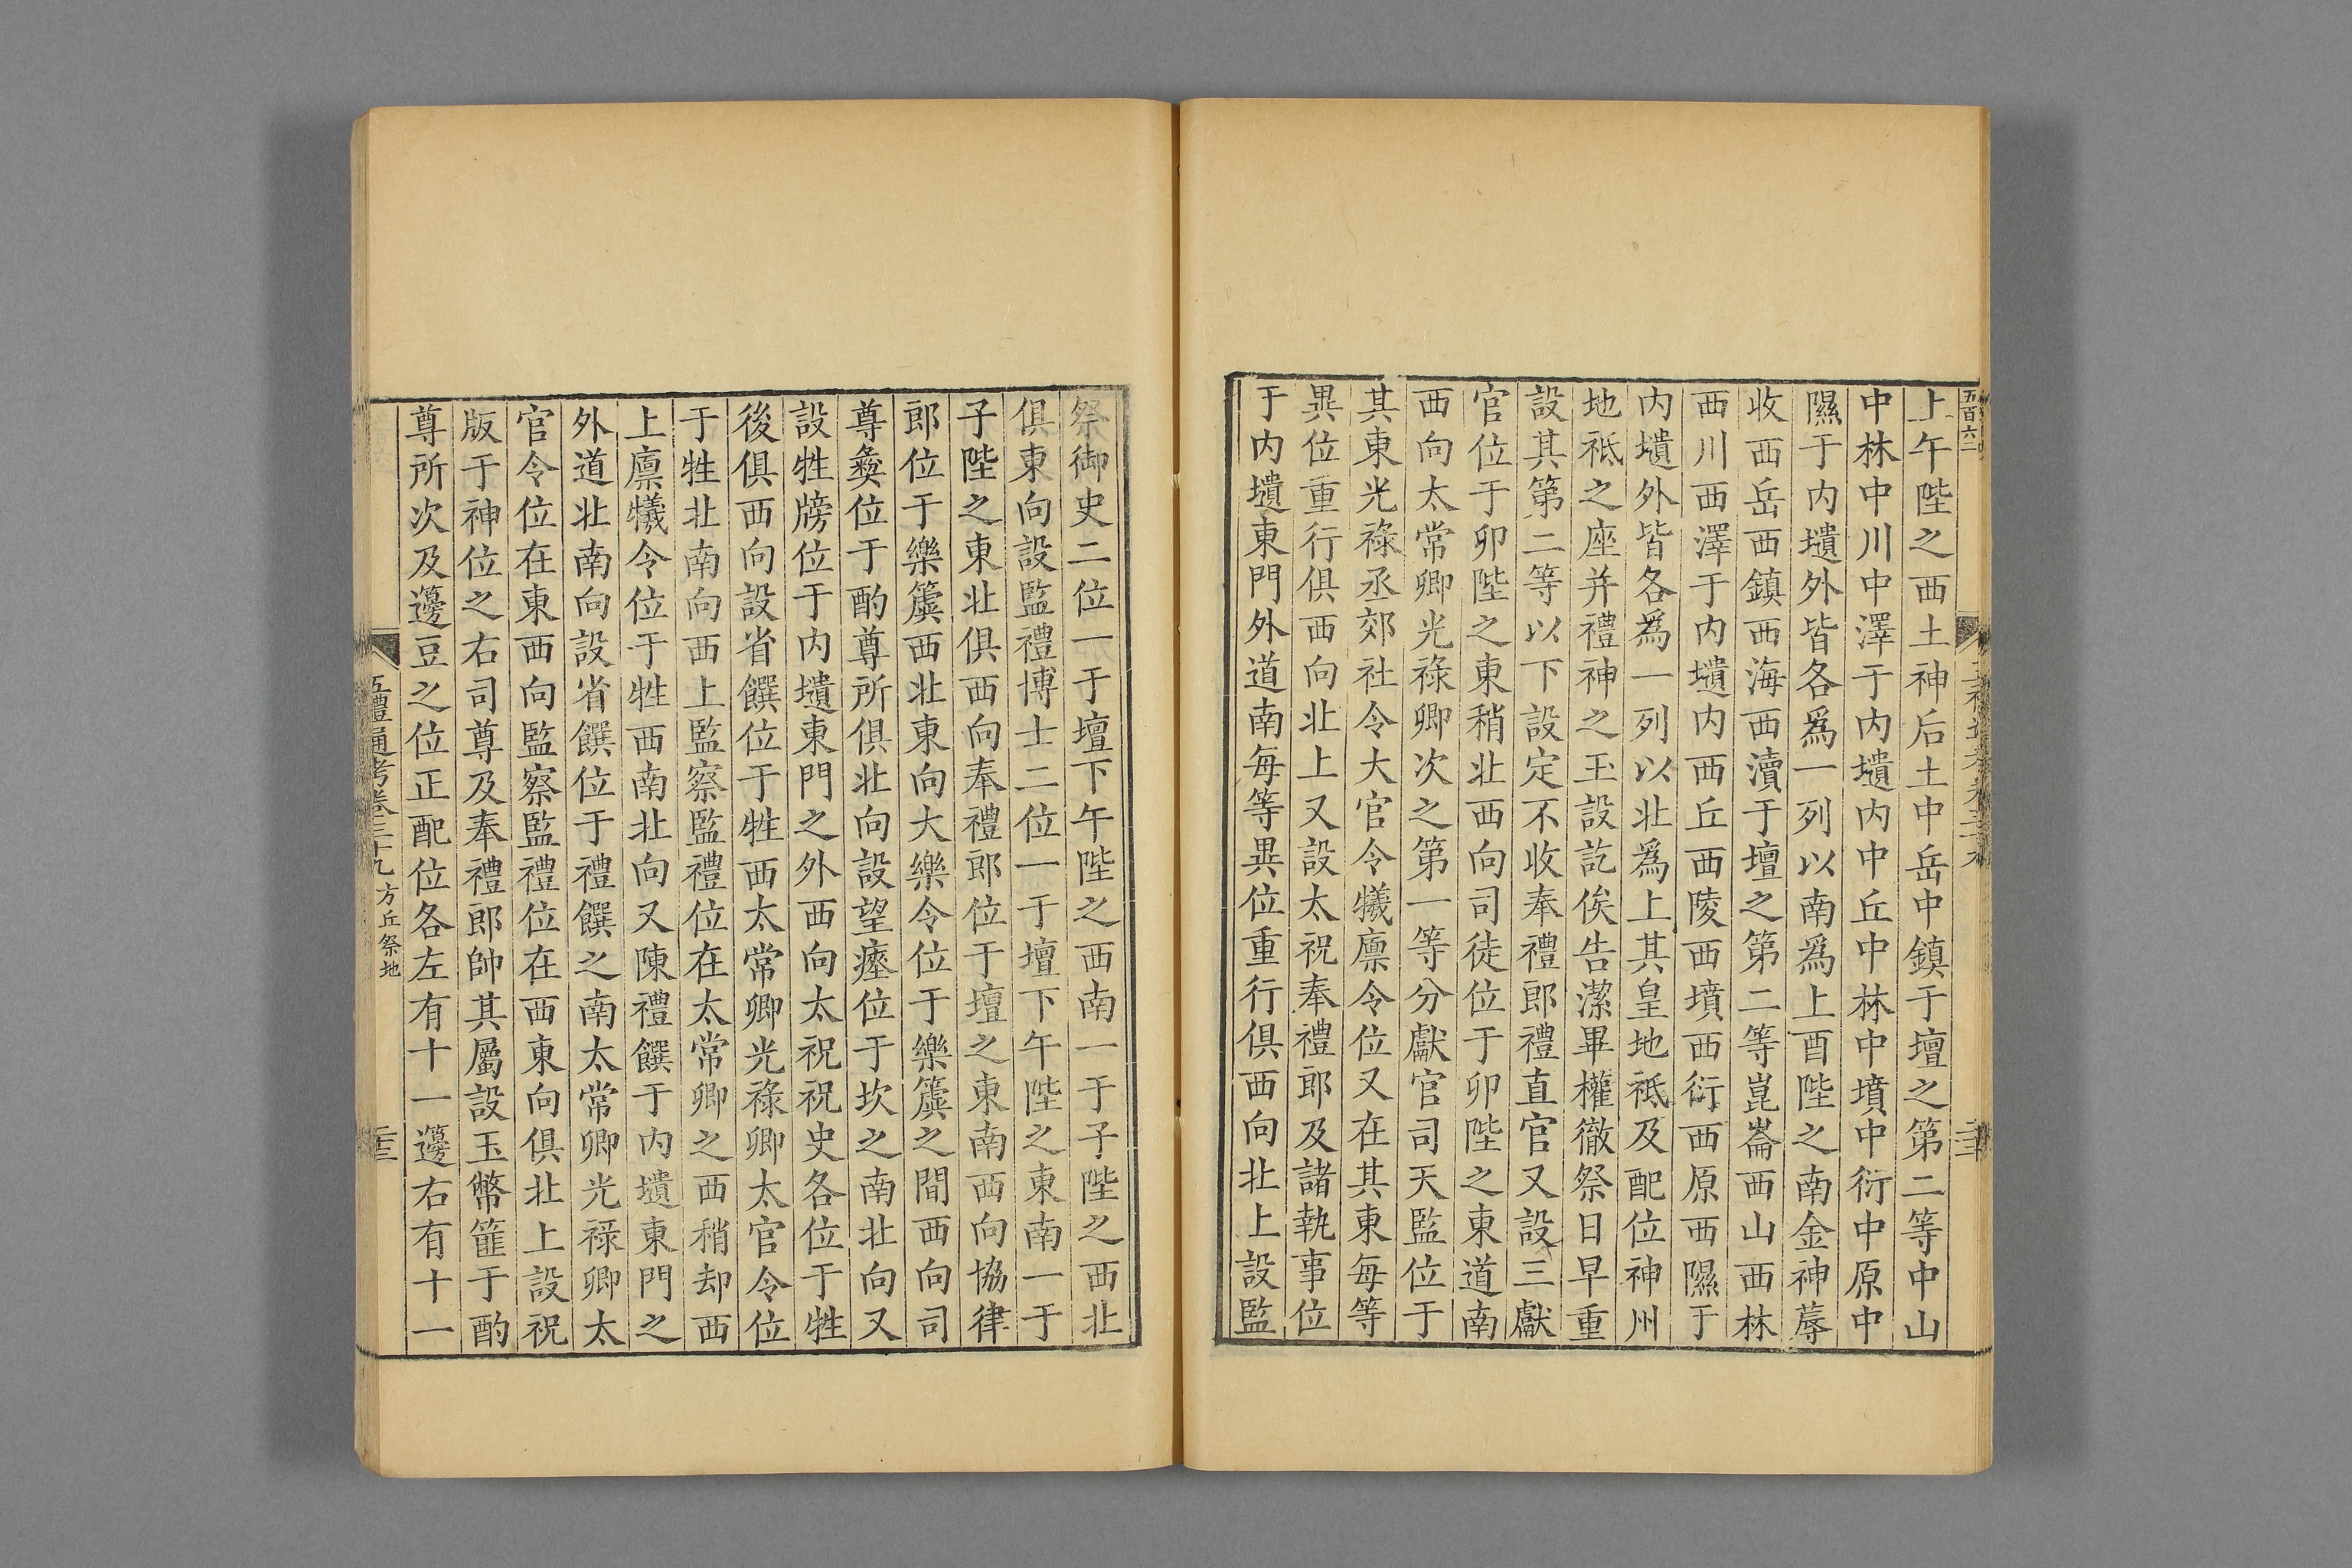 五百六二
上午陛之西土神后土中岳中鎮于壇之第二等中山
中林中川中澤于内壝内中丘中林中墳中衍中原中
隰于内壝外皆各爲一列以南爲上酉陛之南金神蓐
收西岳西鎮西海西瀆于壇之第二等崑崙西山西林
西川西澤于内壝内西丘西陵西墳西衍西原西隰于
内壝外皆各爲一列以北爲上其皇地祇及配位神州
地祇之座并禮神之玉設訖俟告潔畢權徹祭日早重
設其第二等以下設定不收奉禮郎禮直官又設三獻
官位于卯陛之東稍北西向司徒位于卯陛之東道南
西向太常卿光祿卿次之第一等分獻官司天監位于
其東光祿丞郊社令大官令犧廪令位又在其東每等
異位重行俱西向北上又設太祝奉禮郎及諸執事位
于内壝東門外道南每等異位重行俱西向北上設監
祭御史二位一于壇下午陛之西南一于子陛之西北
俱東向設監禮博士二位一于壇下午陛之東南一于
子陛之東北俱西向奉禮郎位于壇之東南西向協律
郎位于樂簴西北東向大樂令位于樂簴之間西向司
尊彝位于酌尊所俱北向設望瘞位于坎之南北向又
設牲牓位于内壝東門之外西向太祝祝史各位于牲
後俱西向設省饌位于牲西太常卿光祿卿太官令位
于牲北南向西上監察監禮位在太常卿之西稍却西
上廪犧令位于牲西南北向又陳禮饌于内壝東門之
外道北南向設省饌位于禮饌之南太常卿光祿卿太
官令位在東西向監察監禮位在西東向俱北上設祝
版于神位之右司尊及奉禮郎帥其屬設玉幣篚于酌
尊所次及籩豆之位正配位各左有十一籩右有十一
五禮通考卷三十九 方丘祭地